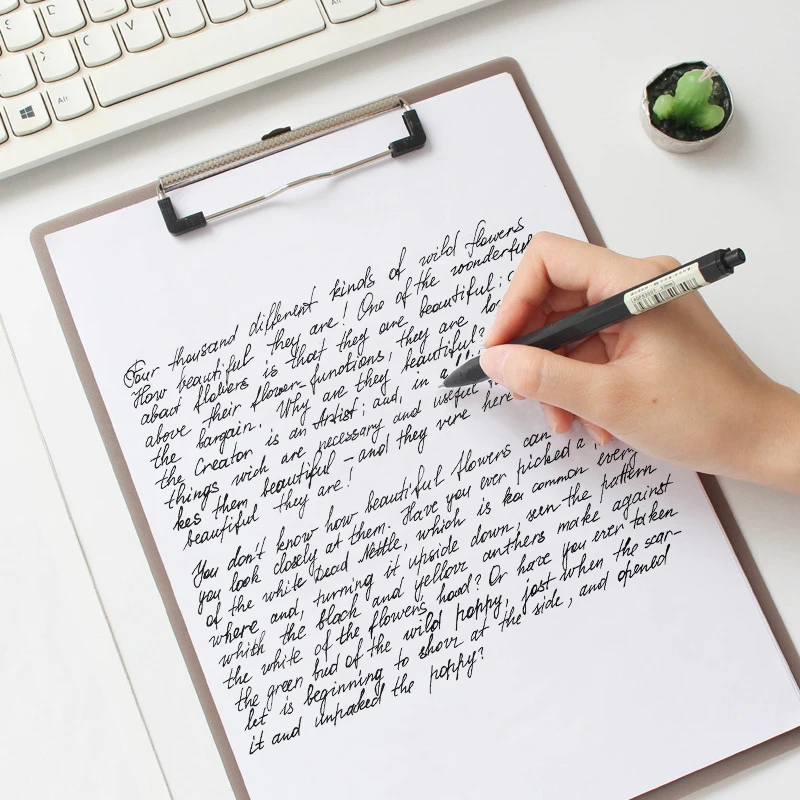 Four thousand different kinds of wild flowers
How beautiful they are! One of the wonderful
about flowers is that they are beautiful;
above their flower-functions, they are
the bargain. Why are they beautiful?
the Creator is an Artist; and, in a
things wich are necessary and useful
kes them beautiful – and they were here
beautiful they are!
You don't know how beautiful flowers can
you look closely at them. Have you ever picked a
of the white Dead Nettle, which is common every
where and, turning it upside down, seen the pattern
which the black and yellow anthers make against
the white of the flowers hood? Or have you ever taken
the green bud of the wild poppy, just when the scar-
let is beginning to show at the side, and opened
it and unpacked the poppy?
Alt
Alt
C
V